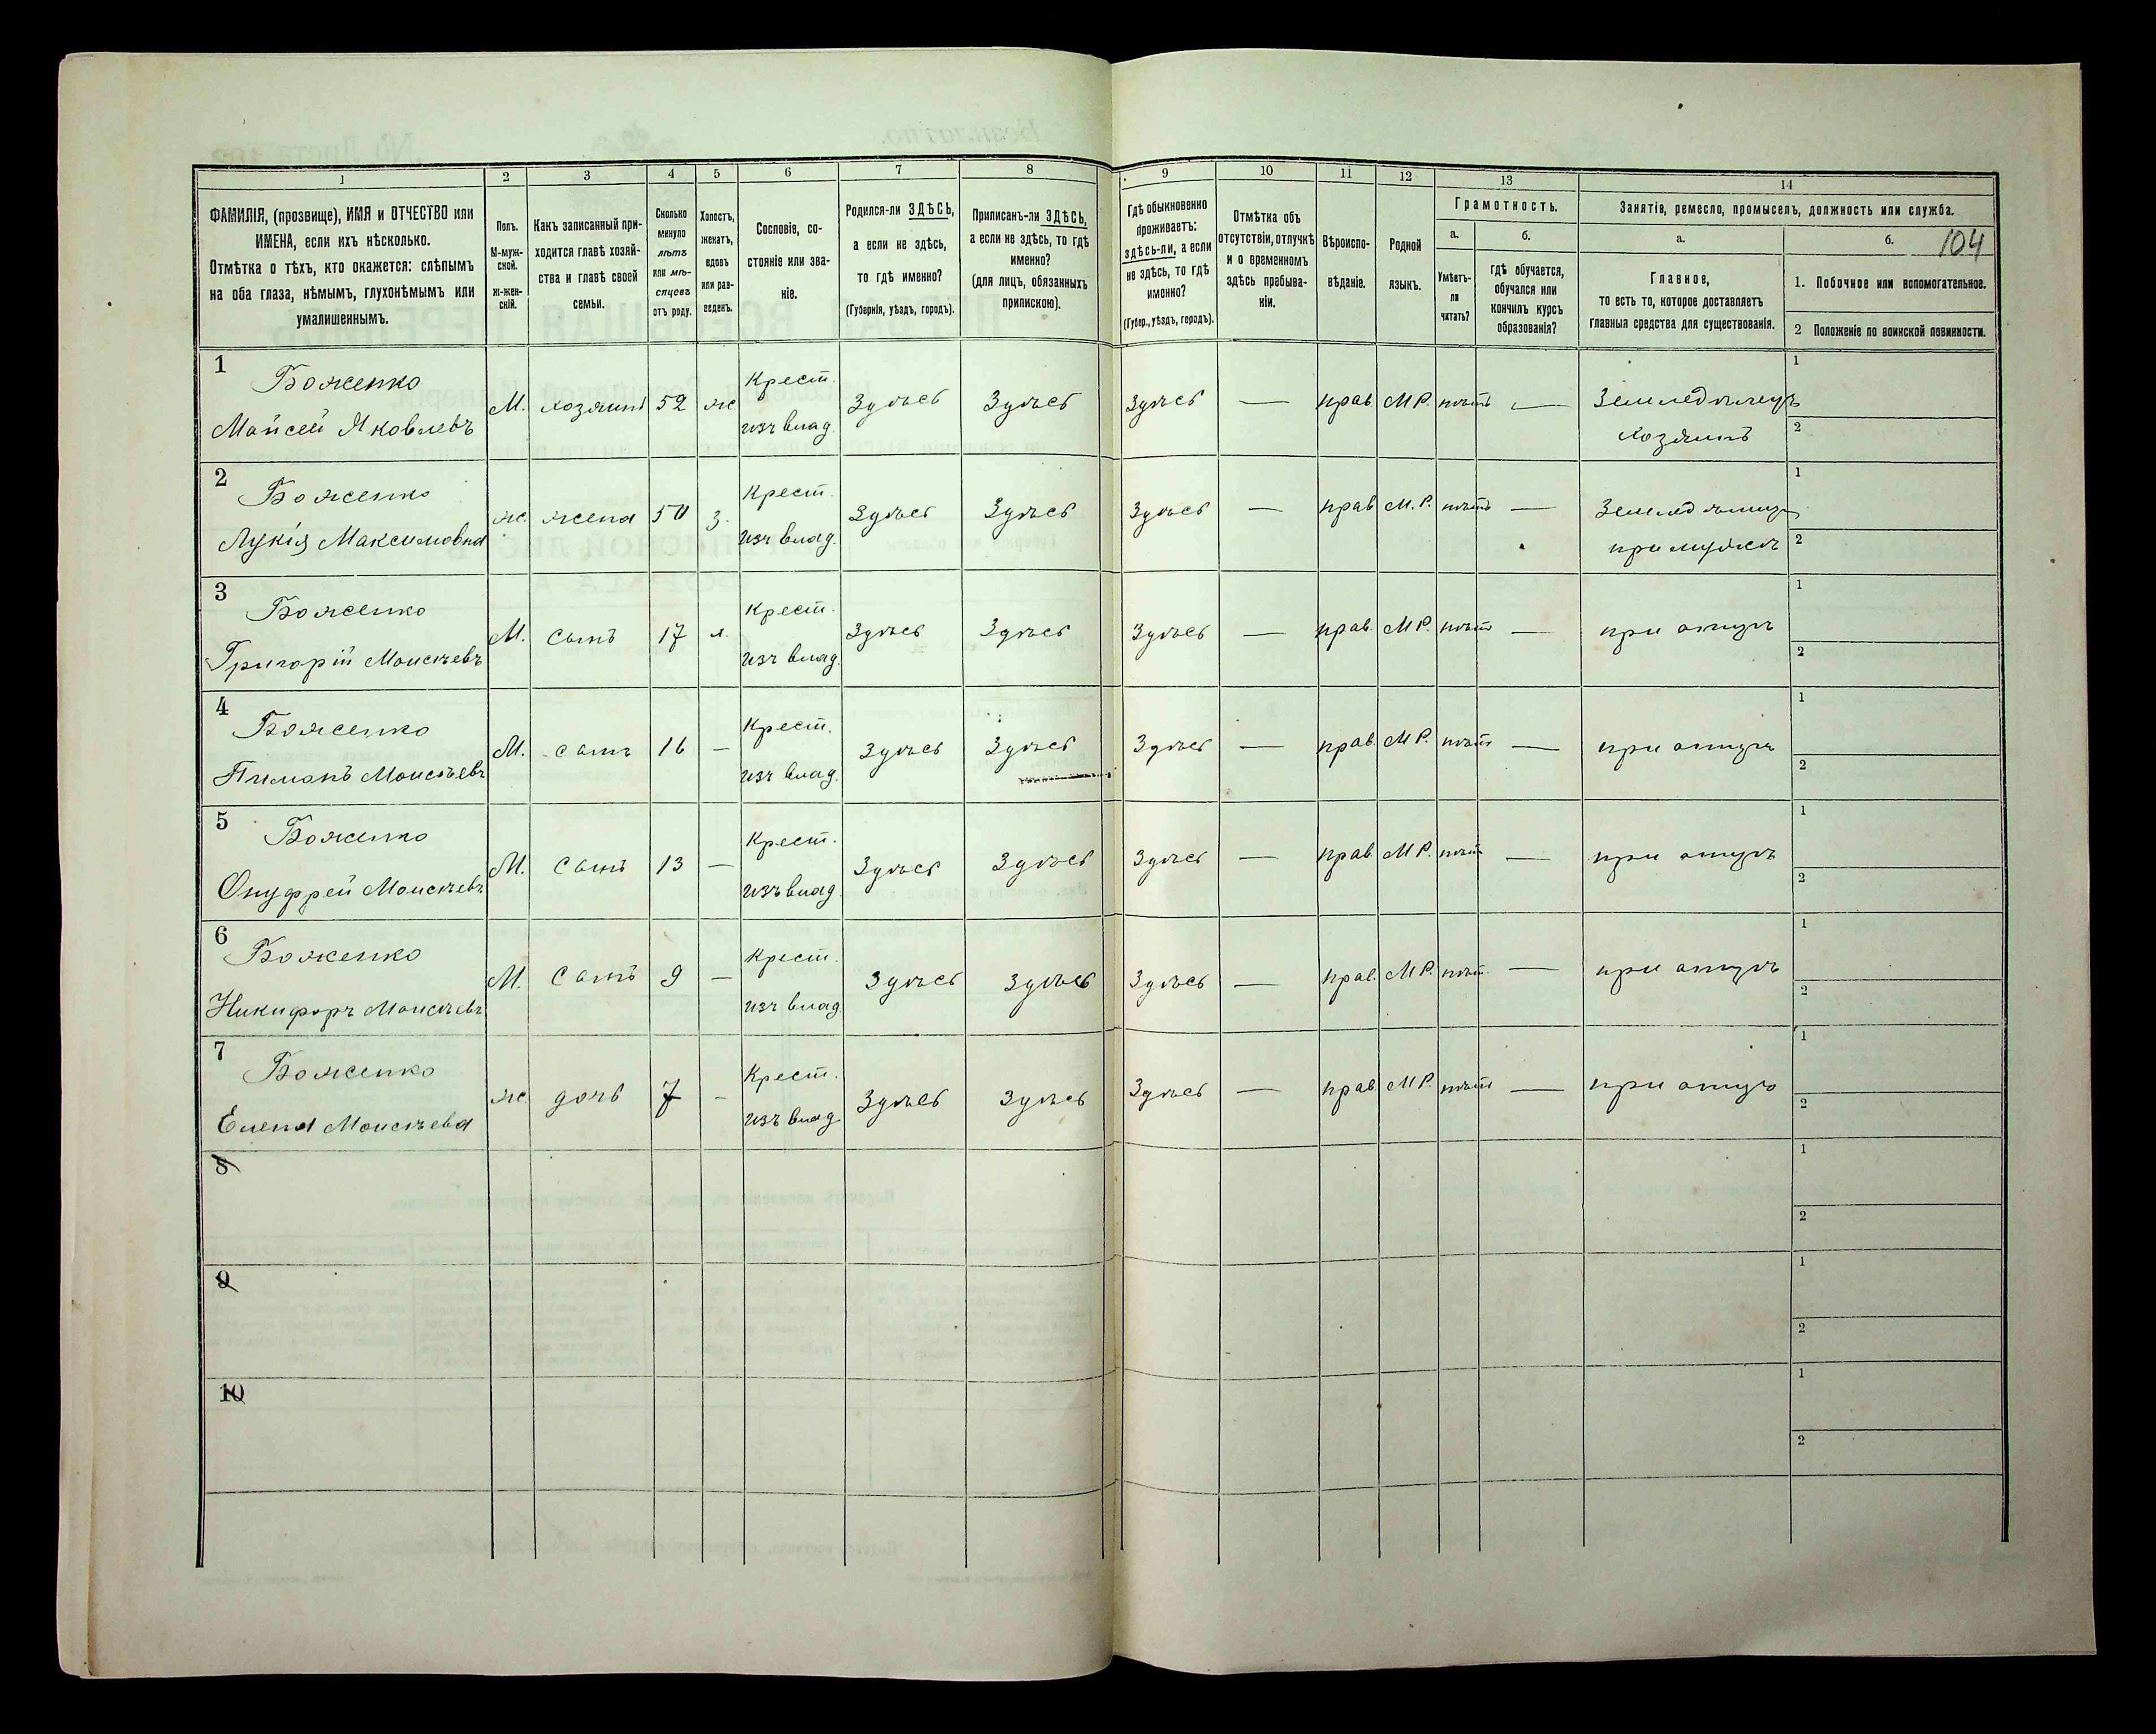 104
1 2 3 4 5 6 7 8 9 10 11 12 13 14
ФАМИЛІЯ, (прозвище), ИМЯ и ОТЧЕСТВО или
ИМЕНА, если ихъ нѣсколько.
Отмѣтка о тѣхъ, кто окажется: слѣпымъ
на оба глаза, нѣмымъ, глухонѣмымъ или
умалишеннымъ.
Полъ.
М-муж-
ской.
ж-жен-
скій.
Какъ записанный при-
ходится главѣ хозяй-
ства и главѣ своей
семьи.
Сколько
минуло
лѣтъ
или мѣ-
сяцевъ
отъ роду.
Холостъ,
женатъ,
вдовъ
или раз-
веденъ.
Сословіе, со-
стояніе или зва-
ніе.
Родился-ли ЗДѢСЬ,
а если не здѣсь,
то гдѣ именно?
(Губернія, уѣздъ, городъ).
Приписанъ-ли ЗДѢСЬ,
а если не здѣсь, то гдѣ
именно?
(для лицъ, обязанныхъ
припискою).
Гдѣ обыкновенно
проживаетъ:
здѣсь-ли, а если
не здѣсь, то гдѣ
именно?
(Губер., уѣздъ, городъ).
Отмѣтка объ
отсутствіи, отлучкѣ
и о временномъ
здѣсь пребыва-
ніи.
Вѣроиспо-
вѣданіе.
Родной
языкъ.
Грамотность.
а.
Умѣетъ-
ли
читать?
б.
гдѣ обучается,
обучался или
кончилъ курсъ
образованія?
Занятіе, ремесло, промыселъ, должность или служба.
а.
Главное,
то есть то, которое доставляетъ
главныя средства для существованія.
б.
1. Побочное или вспомогательное.
2 Положеніе по воинской повинности.
1 Боженко Крест. 1
Мойсей Яковлевъ М. хозяинъ 52 ж изъ влад. Здѣсь Здѣсь Здѣсь — прав М Р. нѣтъ — Земледѣлецъ
хозяинъ 2
2 Боженко Крест. 1
Лукія Максимовна ж. жена 50 з. изъ влад. Здѣсь Здѣсь Здѣсь — прав М. Р. нѣтъ — Землед
при мужѣ 2
3 Боженко Крест. 1
Григорій Моисѣевъ М. сынъ 17 х. изъ влад. Здѣсь Здѣсь Здѣсь — прав. М Р. нѣтъ — при отцѣ 2
4 Боженко Крест. 1
Пимонъ Моисѣевъ М. сынъ 16 — изъ влад. Здѣсь Здѣсь Здѣсь — прав. М Р. нѣтъ — при отцѣ 2
5 Боженко Крест. 1
Онуфрей Моисѣевъ М. сынъ 13 — изъ влад. Здѣсь Здѣсь Здѣсь — прав М Р. нѣтъ — при отцѣ 2
6 Боженко Крест. 1
Никифоръ Моисѣевъ М. сынъ 9 — изъ влад Здѣсь Здѣсь Здѣсь — прав. М Р. нѣтъ — при отцѣ 2
7 Боженко Крест. 1
Елена Моисѣева ж. дочь 7 - изъ влад. Здѣсь Здѣсь Здѣсь — прав М Р. нѣтъ — при отцѣ 2
8 1
2
9 1
2
10 1
2